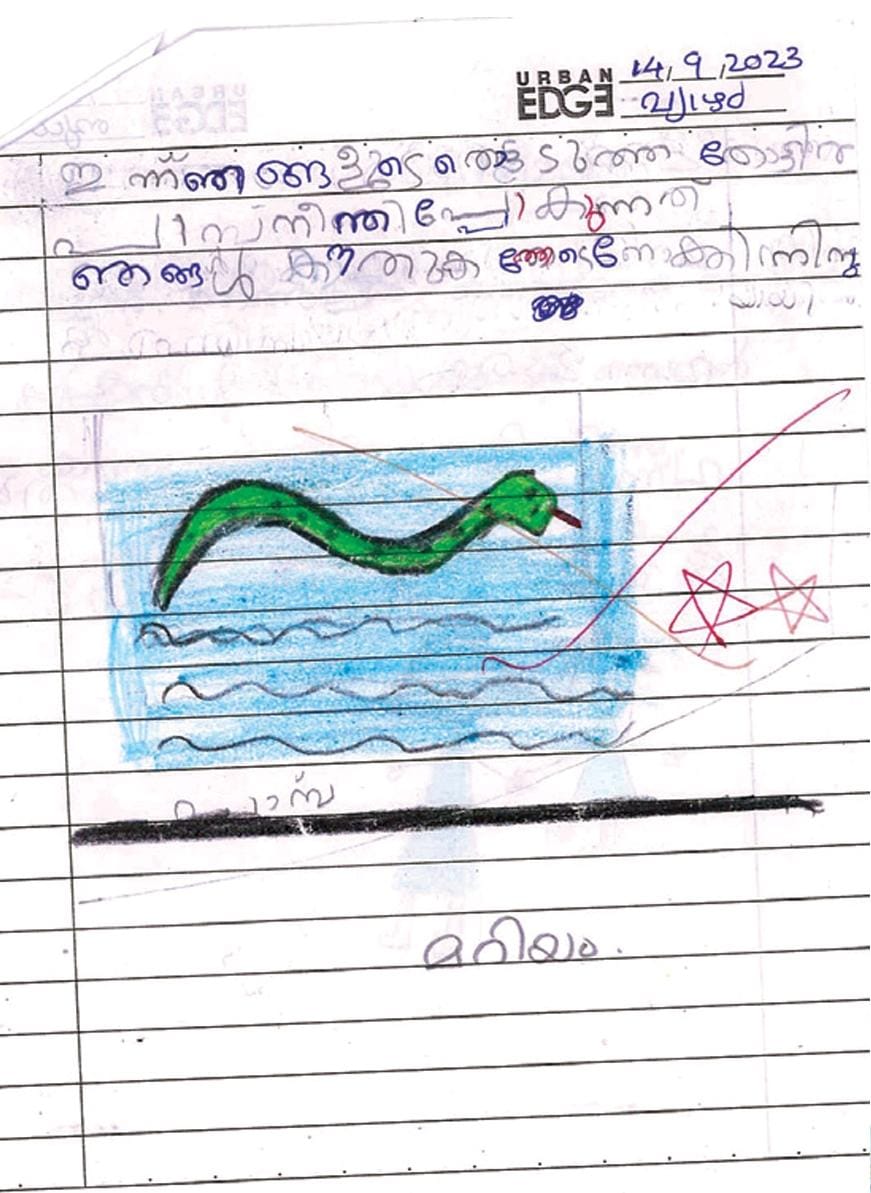 URBAN
EDGE
14, 9, 2023
വ്യാഴം
ഇന്ന് ഞങ്ങളുടെ തൊട്ടടുത്ത തോട്ടിൽ
പാമ്പ് നീന്തിപ്പോകുന്നത്
ഞങ്ങൾ കൗതുകത്തോടെ നോക്കിനിന്നു
പാമ്പ്
മറിയം.